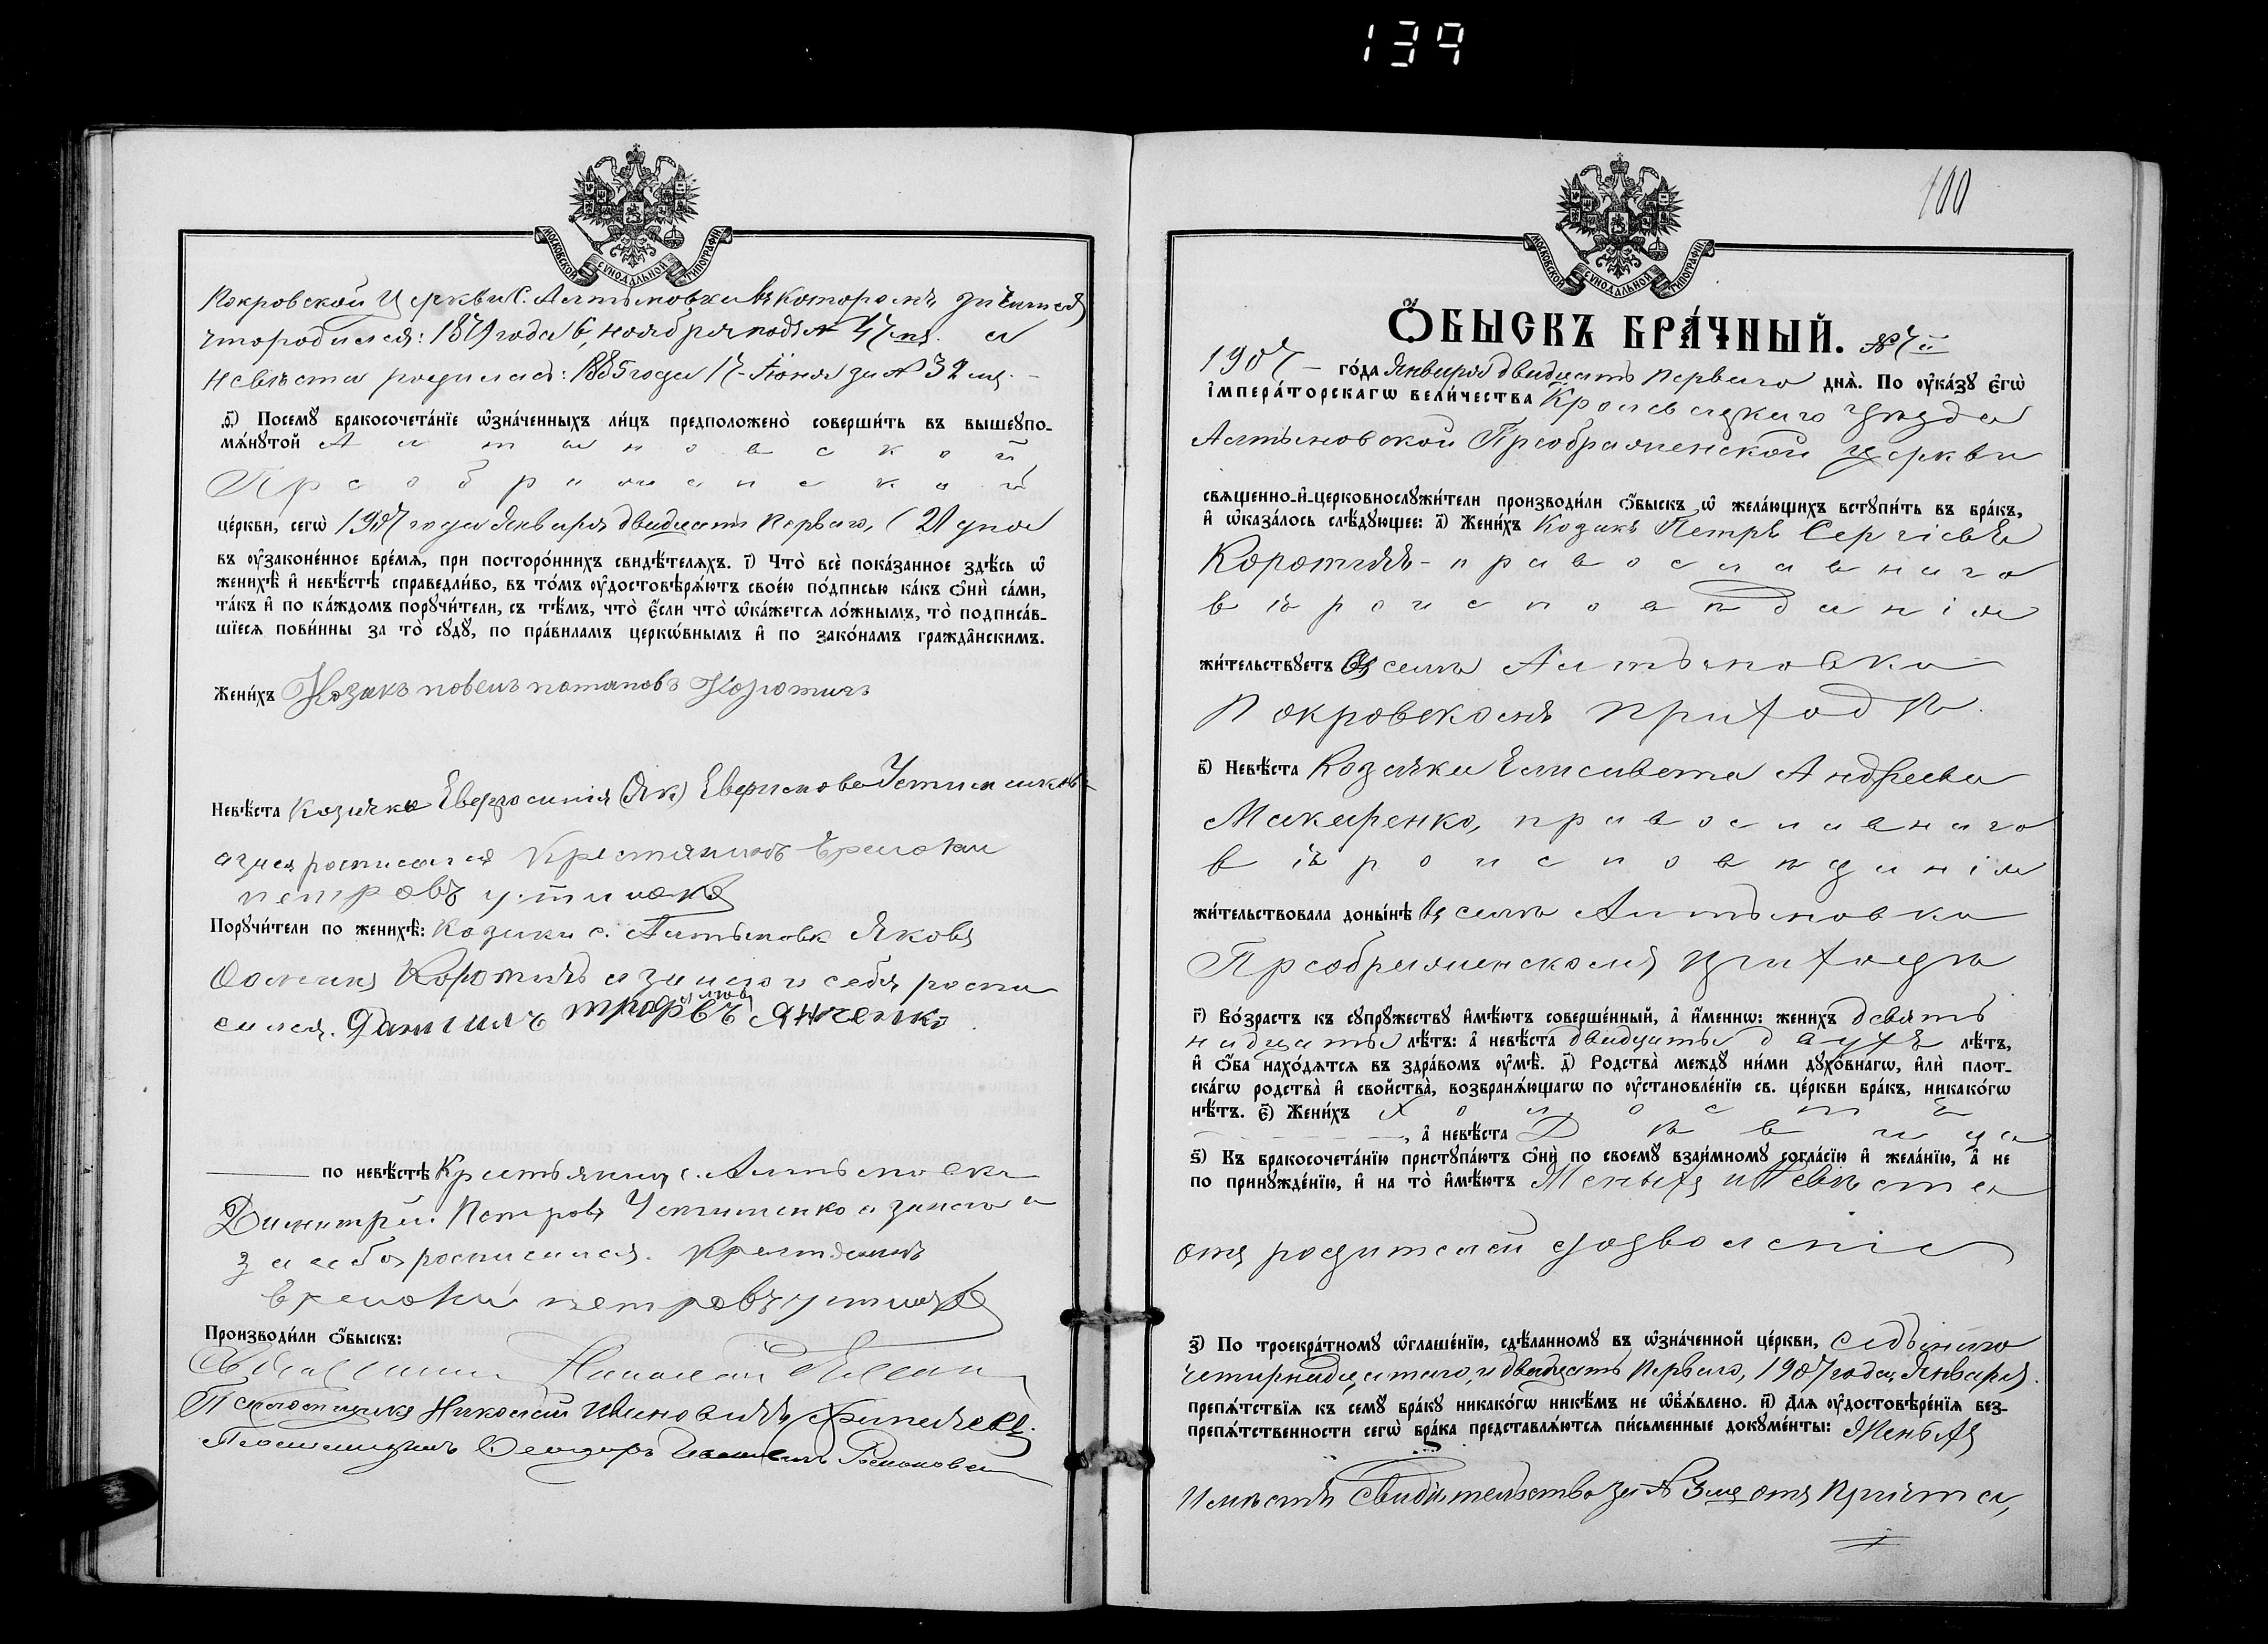 139
МОСКОВСКОЙ СѴНОДАЛЬНОЙ ТИПОГРАФІИ
Покровской Церкви с. Алтыновки въ которомъ значится
что родился: 1879 года 6, ноября подъ № 47 мъ. а
невѣста родилась: 1885 года 17 - Іюня за № 32 мъ. -
ѳ҃) Посемꙋ бракосочета́нїе ѡ҆зна́ченныхъ ли́цъ предположено̀ соверши́ть въ вышеꙋпо-
мѧ́нꙋтой Алтыновской
Преображенской
це́ркви, сегѡ̀ 1907 года Января двадцать перваго, (21 дня
въ ᲂу҆законе́нное вре́мѧ, при посторо́ннихъ свидѣ́телѧхъ. і҃) Что̀ всѐ пока́занное здѣ́сь ѡ҆
женихѣ̀ и҆ невѣ́стѣ справедли́во, въ то́мъ ᲂу҆достовѣрѧ́ютъ свое́ю по́дписью ка́къ ѻ҆нѝ са́ми,
та́къ и҆ по ка́ждомъ порꙋчи́тели, съ тѣ́мъ, что̀ є҆́сли что̀ ѡ҆ка́жетсѧ ло́жнымъ, то̀ подписа́в-
шїесѧ пови́нны за то̀ сꙋдꙋ̀, по пра́виламъ церкѡ́внымъ и҆ по зако́намъ гражда́нскимъ.
Жени́хъ Козакъ повелъ потаповъ Коротичъ
Невѣ́ста Козачка Евфросинія (Як)
росписался Крестянинъ
петровъ
Порꙋчи́тели по женихѣ̀: Козаки с. Алтыновки Яковъ
Коротичъ а за него и себя роспи
сался. Данилъ Янченко
по невѣ́стѣ Крестьянинъ с. Алтыновки
Димитрій Петровъ а за него и
за себя росписался. Крестянинъ
петровъ
Производи́ли ѻ҆́быскъ:
Священникъ Николай
Псаломщикъ Николай Ивановичъ
Псаломщикъ Ѳеодоръ
100
МОСКОВСКОЙ СѴНОДАЛЬНОЙ ТИПОГРАФІИ
Ѻ҆́БЫСКЪ БРА́ЧНЫЙ. № 7 й
1907 - го́да Января двадцать перваго днѧ̀. По ᲂу҆ка́зꙋ є҆гѡ̀
і҆мпера́торскагѡ вели́чества Кролевецкаго уѣзда
Алтыновской Преображенской церкви
свѧщенно-и҆-церковнослꙋжи́тели производи́ли ѻ҆́быскъ ѡ҆ жела́ющихъ встꙋпи́ть въ бра́къ,
и҆ ѡ҆каза́лось слѣ́дꙋющее: а҃) Жени́хъ Козакъ Петръ Сергіевъ
Коротичъ - православнаго
вѣроисповѣданія
жи́тельствꙋетъ въ селѣ Алтыновки
Покровскомъ приходѣ.
в҃) Невѣ́ста Козачка Елисавета Андреева
Макаренко, православнаго
вѣроисповѣданія
жи́тельствовала доны́нѣ въ селѣ Алтыновки
Преображенскомъ приходѣ
г҃) Во́зрастъ къ сꙋпрꙋ́жествꙋ и҆мѣ́ютъ соверше́нный, а҆ и҆́меннѡ: жени́хъ девять
надцать лѣ́тъ: а҆ невѣ́ста двадцать двухъ лѣ́тъ,
и҆ ѻ҆́ба нахо́дѧтсѧ въ здра́вомъ ᲂу҆мѣ̀. д҃) Родства̀ междꙋ̀ ни́ми дꙋхо́внагѡ, и҆лѝ плот-
ска́гѡ родства̀ и҆ сво́йства̀, возбранѧ́ющагѡ по ᲂу҆становле́нїю св. це́ркви бра́къ, никако́гѡ
нѣ́тъ. є҃) Жени́хъ Холостъ
, а҆ невѣ́ста Дѣвица
ѕ҃) Въ бракосочета́нїю пристꙋпа́ютъ ѻ҆нѝ по своемꙋ̀ взаи́мномꙋ согла́сїю и҆ жела́нїю, а҆ не
по принꙋжде́нїю, и҆ на то̀ и҆мѣ́ютъ Женихъ и Невѣста
отъ родителей дозволеніе
з҃) По троекра́тномꙋ ѡ҆глаше́нїю, сдѣ́ланномꙋ въ ѡ҆зна́ченной це́ркви, седьмаго
четирнадцатаго, и двадцать перваго, 1907 года, Января.
препѧ́тствїѧ къ семꙋ̀ бра́кꙋ никако́гѡ никѣ́мъ не ѡ҆б̾ѧ́влено. и҃) Длѧ ᲂу҆достовѣре́нїѧ без-
препѧ́тственности сегѡ̀ бра́ка представлѧ́ютсѧ пи́сьменные докꙋме́нты: Женихъ
имѣетъ свидѣтельство за № 3 мъ отъ причта,